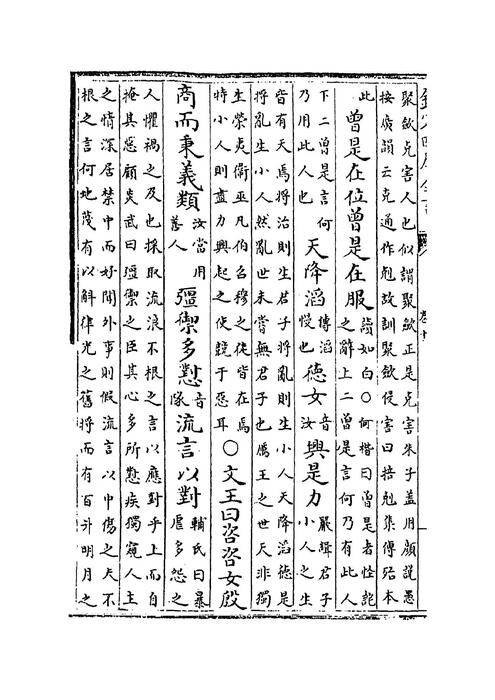 聚斂克害人也似謂聚斂正是克害朱子蓋用顔説愚
按廣韻云克通作剋故訓聚斂侵害曰掊剋集傳殆本
此
曾是在位曾是在服
讀如白○何楷曰曾是者怪詫
之辭上二曾是言何乃有此人
下二曾是言何
乃用此人也
天降滔
傳滔
慢也
德女
音
汝
興是力
嚴緝君子
小人之生
皆有天焉將治則生君子將亂則生小人天降滔德是
將亂生小人然亂世未嘗無君子也厲王之世天非獨
生榮夷衛巫凡伯召穆之徒皆在焉
特小人則盡力興起之使競于惡耳
○文王曰咨咨女殷
商而秉義類
汝當用
善人
彊禦多懟
音
隊
流言以對
輔氏曰暴
虐多怨之
人懼禍之及也採取流浪不根之言以應對乎上而自
掩其惡顧炎武曰彊禦之臣其心多所懟疾獨窺人主
之情深居禁中而好聞外事則假流言以中傷之夫不
根之言何地蔑有以斛律光之舊將而有百升明月之